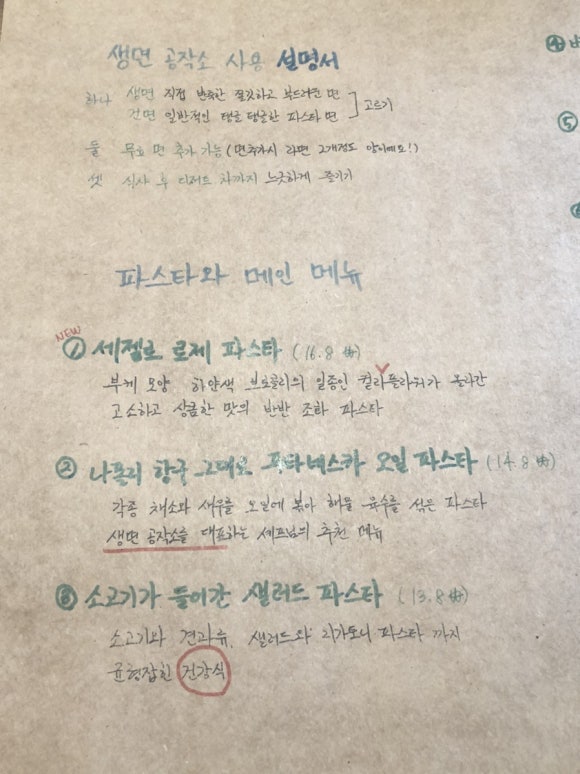 생면 공작소 사용 설명서
하나 생면 직접 반죽한 쫄깃하고 부드러운 면
건면 일반적인 탱글 탱글한 파스타 면
고르기
둘 무료 면 추가 가능 (면추가시 라면 2개정도 양이에요!)
셋 식사 후 디저트 차까지 느긋하게 즐기기
파스타와 메인 메뉴
NEW
① 세젤로 로제 파스타 (16.8)
부케 모양 하얀색 브로콜리의 일종인 컬리플라워가 올라간
고소하고 상큼한 맛의 반반 조화 파스타
② 나폴리 항구 그대로 푸타네스카 오일 파스타 (14.8)
각종 채소와 새우를 오일에 볶아 해물 육수를 섞은 파스타
생면 공작소를 대표하는 셰프님의 추천 메뉴
③ 소고기가 들어간 샐러드 파스타 (13.8)
소고기와 견과류, 샐러드와 리가토니 파스타 까지
균형잡힌 건강식
④
⑤